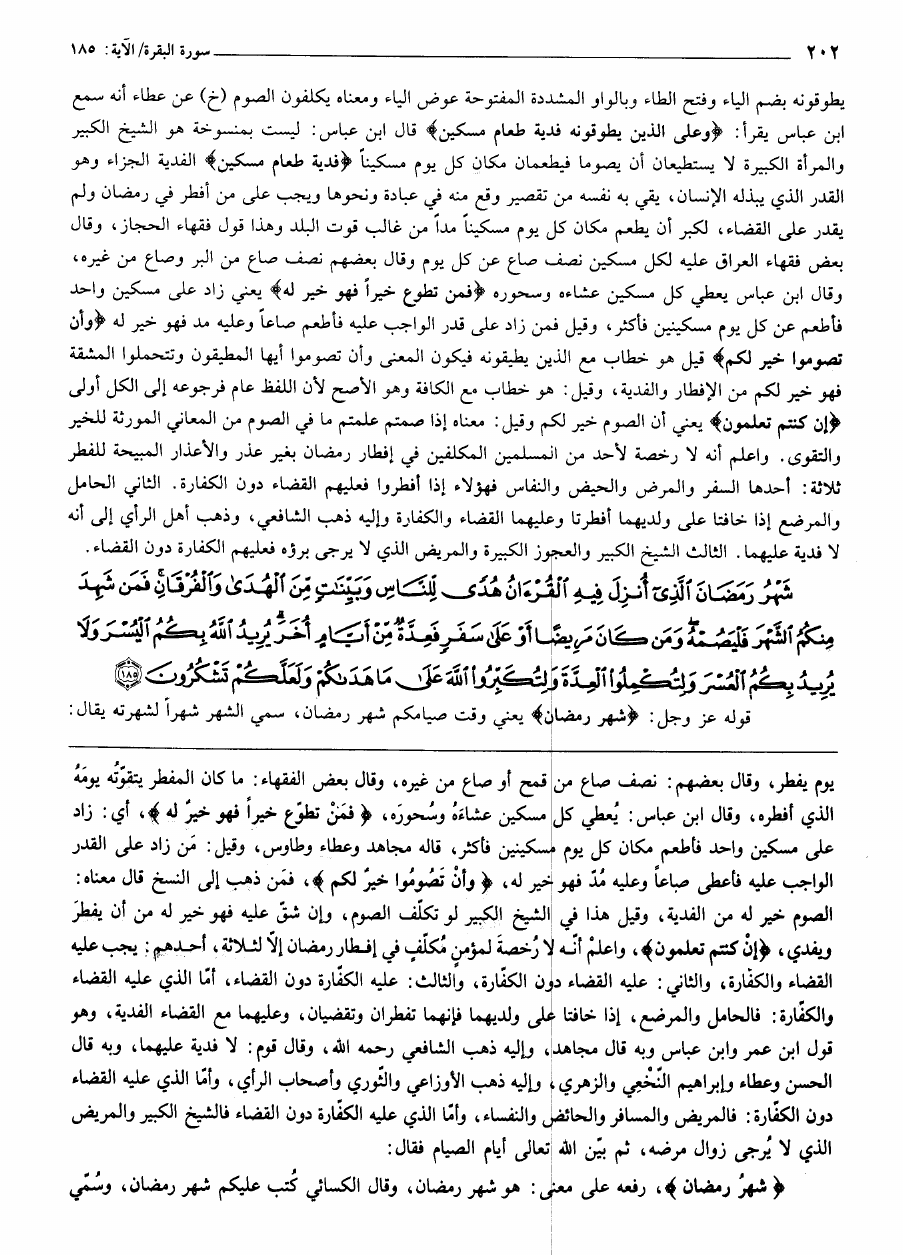 ٢٠٢ سورة البقرة/ الآية: ١٨٥
يطوقونه بضم الياء وفتح الطاء وبالواو المشددة المفتوحة عوض الياء ومعناه يكلفون الصوم (خ) عن عطاء أنه سمع
ابن عباس يقرأ: ﴿وعلى الذين يطوقونه فدية طعام مسكين﴾ قال ابن عباس: ليست بمنسوخة هو الشيخ الكبير
والمرأة الكبيرة لا يستطيعان أن يصوما فيطعمان مكان كل يوم مسكيناً ﴿فدية طعام مسكين﴾ الفدية الجزاء وهو
القدر الذي يبذله الإنسان، يقي به نفسه من تقصير وقع منه في عبادة ونحوها ويجب على من أفطر في رمضان ولم
يقدر على القضاء، لكبر أن يطعم مكان كل يوم مسكيناً مداً من غالب قوت البلد وهذا قول فقهاء الحجاز، وقال
بعض فقهاء العراق عليه لكل مسكين نصف صاع عن كل يوم وقال بعضهم نصف صاع من البر وصاع من غيره،
وقال ابن عباس يعطي كل مسكين عشاءه وسحوره ﴿فمن تطوع خيراً فهو خير له﴾ يعني زاد على مسكين واحد
فأطعم عن كل يوم مسكينين فأكثر، وقيل فمن زاد على قدر الواجب عليه فأطعم صاعاً وعليه مد فهو خير له ﴿وأن
تصوموا خير لكم﴾ قيل هو خطاب مع الذين يطيقونه فيكون المعنى وأن تصوموا أيها المطيقون وتتحملوا المشقة
فهو خير لكم من الإفطار والفدية، وقيل: هو خطاب مع الكافة وهو الأصح لأن اللفظ عام فرجوعه إلى الكل أولى
﴿إن كنتم تعلمون﴾ يعني أن الصوم خير لكم وقيل: معناه إذا صمتم علمتم ما في الصوم من المعاني المورثة للخير
والتقوى. واعلم أنه لا رخصة لأحد من المسلمين المكلفين في إفطار رمضان بغير عذر والأعذار المبيحة للفطر
ثلاثة: أحدها السفر والمرض والحيض والنفاس فهؤلاء إذا أفطروا فعليهم القضاء دون الكفارة. الثاني الحامل
والمرضع إذا خافتا على ولديهما أفطرتا وعليهما القضاء والكفارة وإليه ذهب الشافعي، وذهب أهل الرأي إلى أنه
لا فدية عليهما. الثالث الشيخ الكبير والعجوز الكبيرة والمريض الذي لا يرجى برؤه فعليهم الكفارة دون القضاء.
شَهْرُ رَمَضَانَ ٱلَّذِىٓ أُنزِلَ فِيهِ ٱلْقُرْءَانُ هُدًى لِّلنَّاسِ وَبَيِّنَٰتٍ مِّنَ ٱلْهُدَىٰ وَٱلْفُرْقَانِۚ فَمَن شَهِدَ
مِنكُمُ ٱلشَّهْرَ فَلْيَصُمْهُۖ وَمَن كَانَ مَرِيضًا أَوْ عَلَىٰ سَفَرٍ فَعِدَّةٌ مِّنْ أَيَّامٍ أُخَرَۗ يُرِيدُ ٱللَّهُ بِكُمُ ٱلْيُسْرَ وَلَا
يُرِيدُ بِكُمُ ٱلْعُسْرَ وَلِتُكْمِلُوا۟ ٱلْعِدَّةَ وَلِتُكَبِّرُوا۟ ٱللَّهَ عَلَىٰ مَا هَدَىٰكُمْ وَلَعَلَّكُمْ تَشْكُرُونَ ﴿١٨٥﴾
قوله عز وجل: ﴿شهر رمضان﴾ يعني وقت صيامكم شهر رمضان، سمي الشهر شهراً لشهرته يقال:
يوم يفطر، وقال بعضهم: نصف صاع من قمح أو صاع من غيره، وقال بعض الفقهاء: ما كان المفطر يتقوّته يومَهُ
الذي أفطره، وقال ابن عباس: يُعطي كل مسكين عشاءَهُ وسُحورَه، ﴿ فمَنْ تطوّع خيراً فهو خيرٌ له ﴾، أي: زاد
على مسكين واحد فأطعم مكان كل يوم مسكينين فأكثر، قاله مجاهد وعطاء وطاوس، وقيل: مَن زاد على القدر
الواجب عليه فأعطى صاعاً وعليه مُدّ فهو خير له، ﴿ وأنْ تَصُومُوا خيرٌ لكم ﴾، فمَن ذهب إلى النسخ قال معناه:
الصوم خير له من الفدية، وقيل هذا في الشيخ الكبير لو تكلّف الصوم، وإن شقّ عليه فهو خير له من أن يفطرَ
ويفدي، ﴿إنْ كنتم تعلمون﴾، واعلمْ أنّه لا رُخصةَ لمؤمنٍ مُكلّفٍ في إفطار رمضان إلّا لثلاثة، أحدهم: يجب عليه
القضاء والكفّارة، والثاني: عليه القضاء دون الكفّارة، والثالث: عليه الكفّارة دون القضاء، أمّا الذي عليه القضاء
والكفّارة: فالحامل والمرضع، إذا خافتا على ولديهما فإنهما تفطران وتقضيان، وعليهما مع القضاء الفدية، وهو
قول ابن عمر وابن عباس وبه قال مجاهد، وإليه ذهب الشافعي رحمه الله، وقال قوم: لا فدية عليهما، وبه قال
الحسن وعطاء وإبراهيم النّخَعِي والزهري، وإليه ذهب الأوزاعي والثّوري وأصحاب الرأي، وأمّا الذي عليه القضاء
دون الكفّارة: فالمريض والمسافر والحائض والنفساء، وأمّا الذي عليه الكفّارة دون القضاء فالشيخ الكبير والمريض
الذي لا يُرجى زوال مرضه، ثم بيّن الله تعالى أيام الصيام فقال:
﴿ شهرُ رمضان ﴾، رفعه على معنى: هو شهر رمضان، وقال الكسائي كُتب عليكم شهر رمضان، وسُمّي